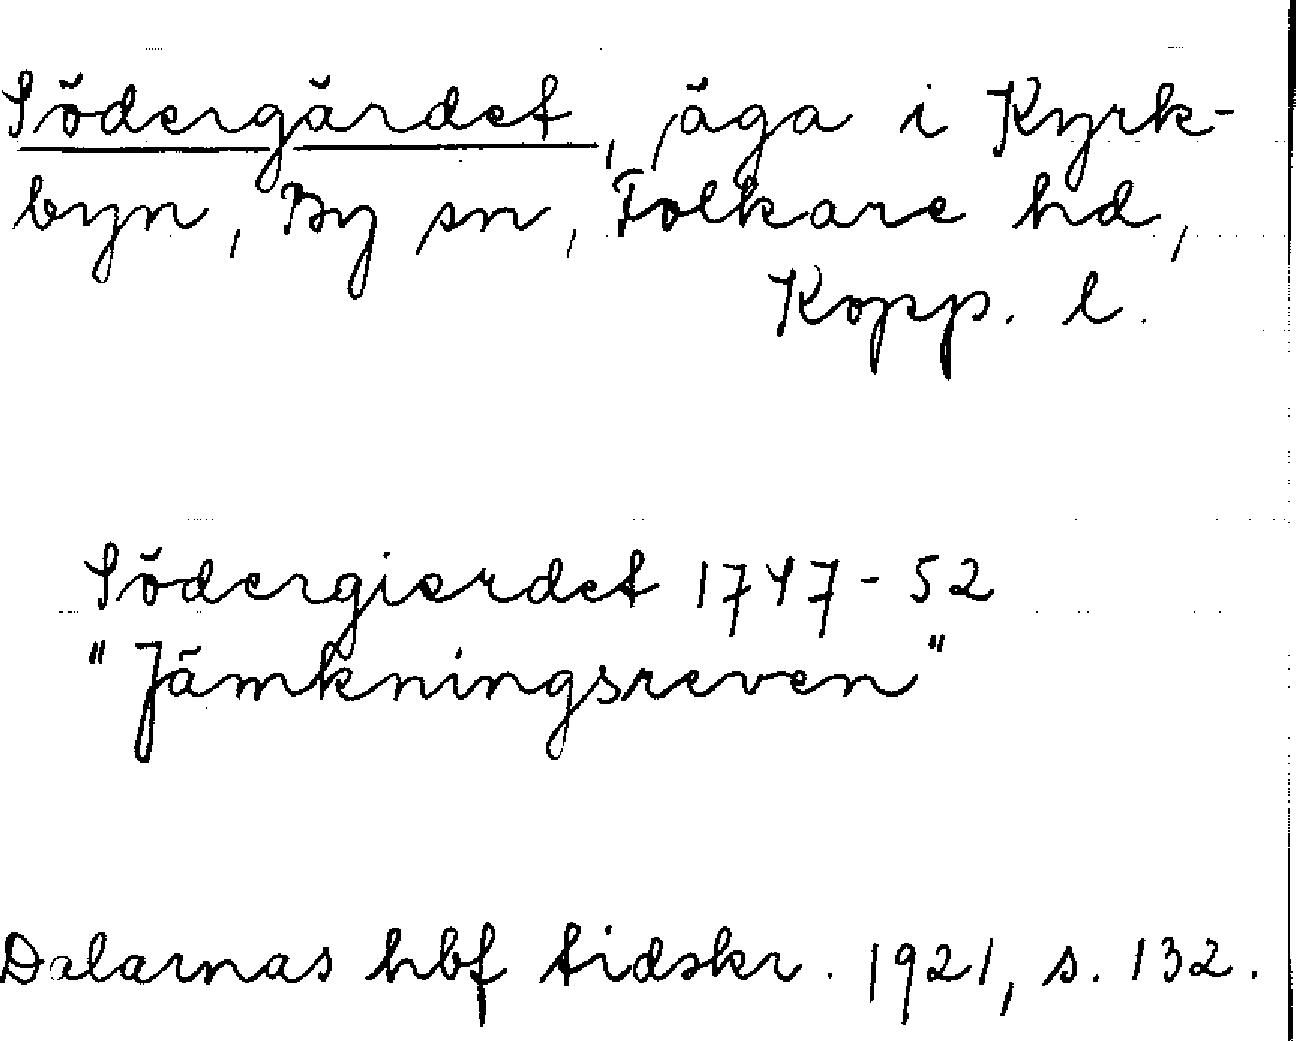 Södergärdet, äga i Kyrk-
byn, By sn, Folkare hd,
Kopp. l.
Södergierdet 1747-52
"Jämkningsreven"
Dalarnas hbf tidskr. 1921, s. 132.